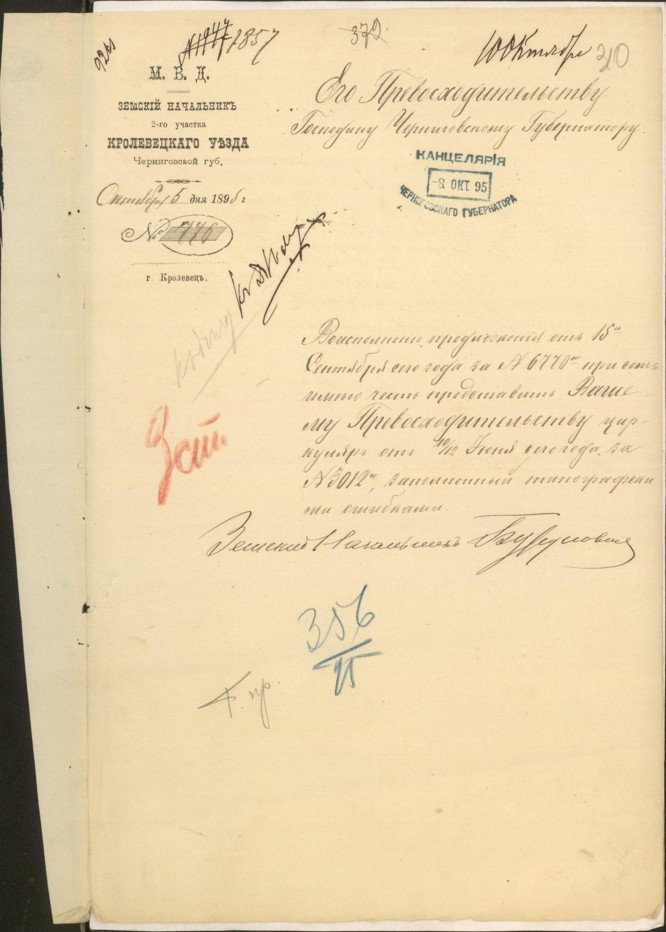 9261
N 1947 1857
372.
10 Октября
210
М. В. Д.
ЗЕМСКІЙ НАЧАЛЬНИКЪ
2-го участка
КРОЛЕВЕЦКАГО УѢЗДА
Черниговской губ.
Октября 5 дня 1895 г.
№ 776
г. Кролевецъ.
Его Превосходительству
Господину Черниговскому Губернатору.
КАНЦЕЛЯРІЯ
-8 ОКТ. 95
ЧЕРНИГОВСКАГО ГУБЕРНАТОРА
къ дѣлу
къ дѣлу
Во исполненіе предложенія отъ 15го
Сентября сего года за N 6770мъ при семъ
имѣю честь представить Ваше-
му Превосходительству цир-
куляръ отъ 10/12 Іюня сего года за
N 3012мъ, заполненный типографски-
ми ошибками.
Земский Начальникъ
3 ст.
356
95
Г. пр.